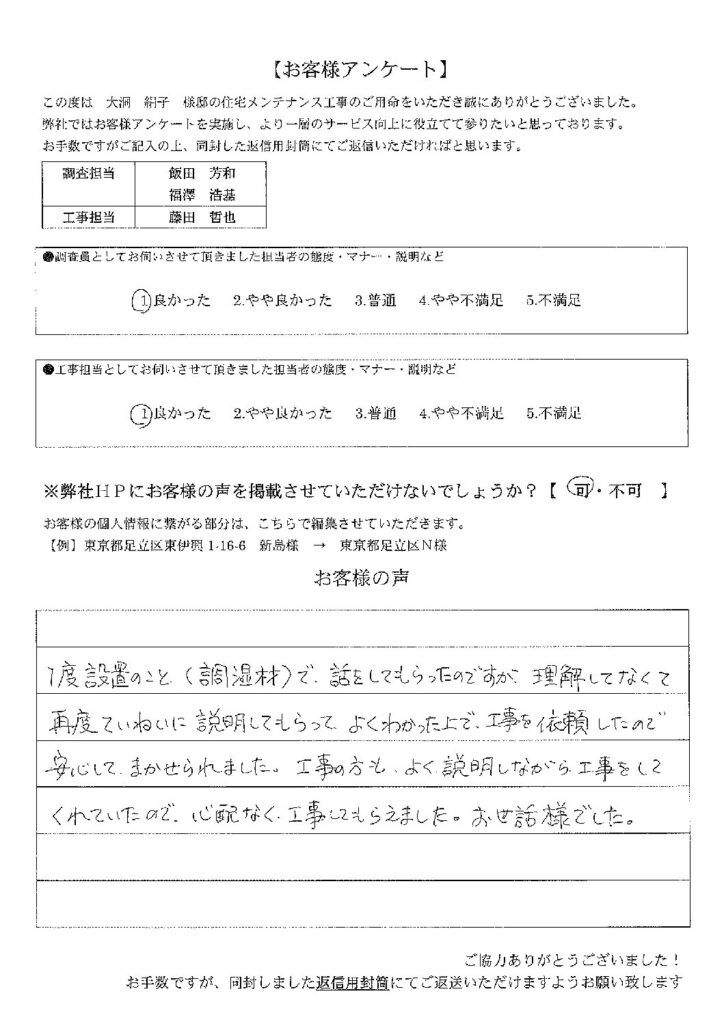 【お客様アンケート】
この度は　大洞　絹子　様邸の住宅メンテナンス工事のご用命をいただき誠にありがとうございました。
弊社ではお客様アンケートを実施し、より一層のサービス向上に役立てて参りたいと思っております。
お手数ですがご記入の上、同封した返信用封筒にてご返信いただければと思います。
調査担当　飯田　芳和
福澤　浩基
工事担当　藤田　哲也
●調査員としてお伺いさせて頂きました担当者の態度・マナー・説明など
1.良かった　2.やや良かった　3.普通　4.やや不満足　5.不満足
●工事担当としてお伺いさせて頂きました担当者の態度・マナー・説明など
1.良かった　2.やや良かった　3.普通　4.やや不満足　5.不満足
※弊社ＨＰにお客様の声を掲載させていただけないでしょうか？【　可・不可　】
お客様の個人情報に繋がる部分は、こちらで編集させていただきます。
【例】東京都足立区東伊興 1-16-6　新島様　→　東京都足立区Ｎ様
お客様の声
1度設置のこと（調湿材）で、話をしてもらったのですが、理解してなくて
再度ていねいに説明してもらって、よくわかった上で、工事を依頼したので
安心して、まかせられました。工事の方も、よく説明しながら、工事をして
くれていたので、心配なく、工事してもらえました。お世話様でした。
ご協力ありがとうございました！
お手数ですが、同封しました返信用封筒にてご返送いただけますようお願い致します